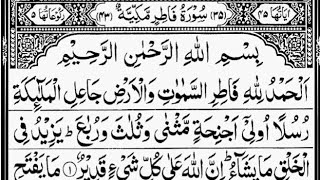 اٰيَاتُهَا ٤٥ (٣٥) سُوْرَةُ فَاطِرٍ مَكِّيَّةٌ (٤٣) رُكُوْعَاتُهَا ٥
بِسْمِ اللّٰهِ الرَّحْمٰنِ الرَّحِيْمِ
اَلْحَمْدُ لِلّٰهِ فَاطِرِ السَّمٰوٰتِ وَالْاَرْضِ جَاعِلِ الْمَلٰٓئِكَةِ
رُسُلًا اُولِىْٓ اَجْنِحَةٍ مَّثْنٰى وَثُلٰثَ وَرُبٰعَ ؕ يَزِيْدُ فِى
الْخَلْقِ مَا يَشَآءُ ؕ اِنَّ اللّٰهَ عَلٰى كُلِّ شَىْءٍ قَدِيْرٌ ﴿۱﴾ مَا يَفْتَحِ